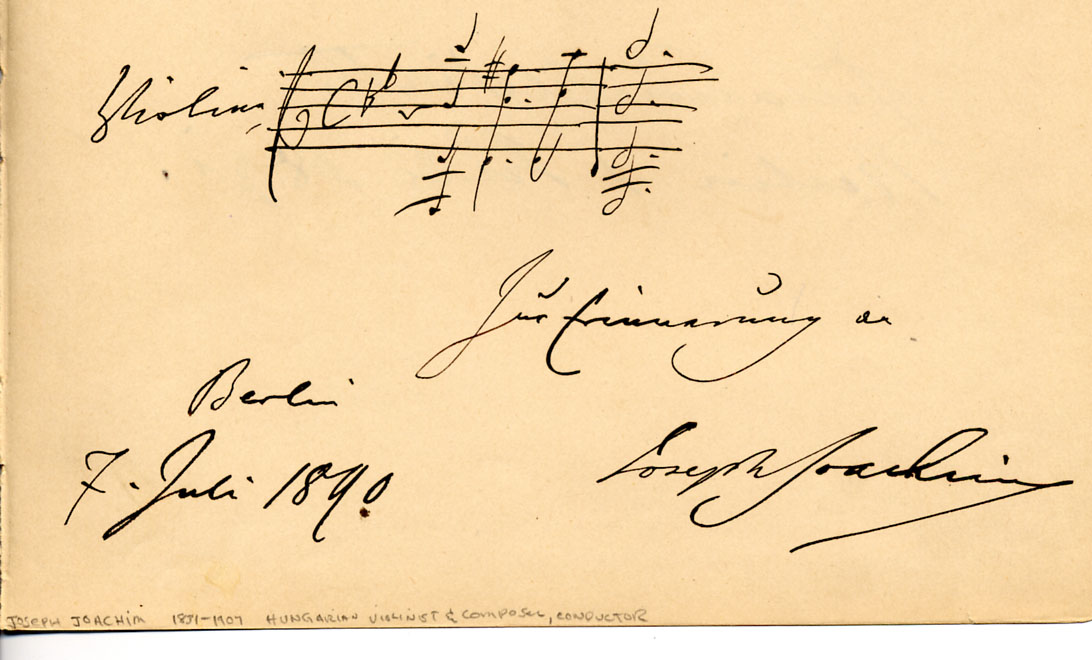 Violine
Zur Erinnerung an
Berlin
7. Juli 1890
Joseph Joachim
JOSEPH JOACHIM 1831-1907 HUNGARIAN VIOLINIST & COMPOSER, CONDUCTOR